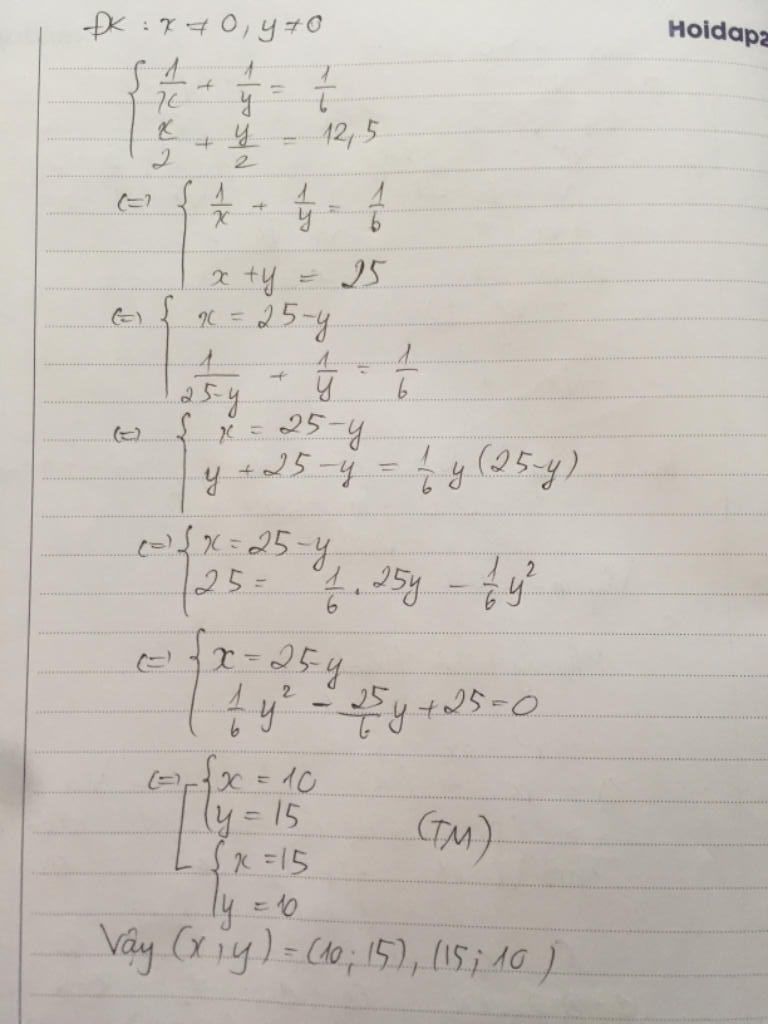 ĐK : x ≠ 0, y ≠ 0
Hoidap2
{ 1/x + 1/y = 1/6
x/2 + y/2 = 12,5
(=) { 1/x + 1/y = 1/6
x + y = 25
(=) { x = 25-y
1/(25-y) + 1/y = 1/6
(=) { x = 25-y
y + 25 - y = 1/6 y (25-y)
(=) { x = 25-y
25 = 1/6 . 25y - 1/6 y²
(=) { x = 25-y
1/6 y² - 25/6 y + 25 = 0
(=) [ { x = 10
y = 15
(TM)
{ x = 15
y = 10
Vậy (x, y) = (10; 15), (15; 10)